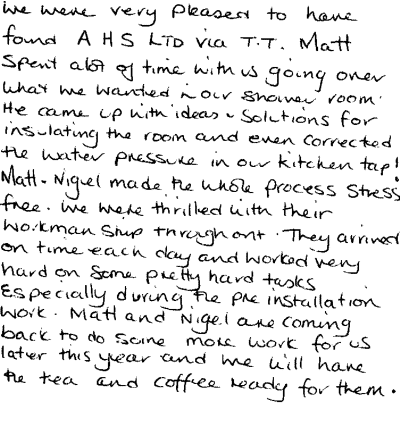 we were very pleased to have
found A H S LTD via T.T. Matt
spent alot of time with us going over
what we wanted in our shower room.
He came up with ideas & solutions for
insulating the room and even corrected
the water pressure in our kitchen tap!
Matt & Nigel made the whole process stress
free. we were thrilled with their
workmanship throughout. They arrived
on time each day and worked very
hard on some pretty hard tasks
especially during the pre installation
work. Matt and Nigel are coming
back to do some more work for us
later this year and we will have
the tea and coffee ready for them.